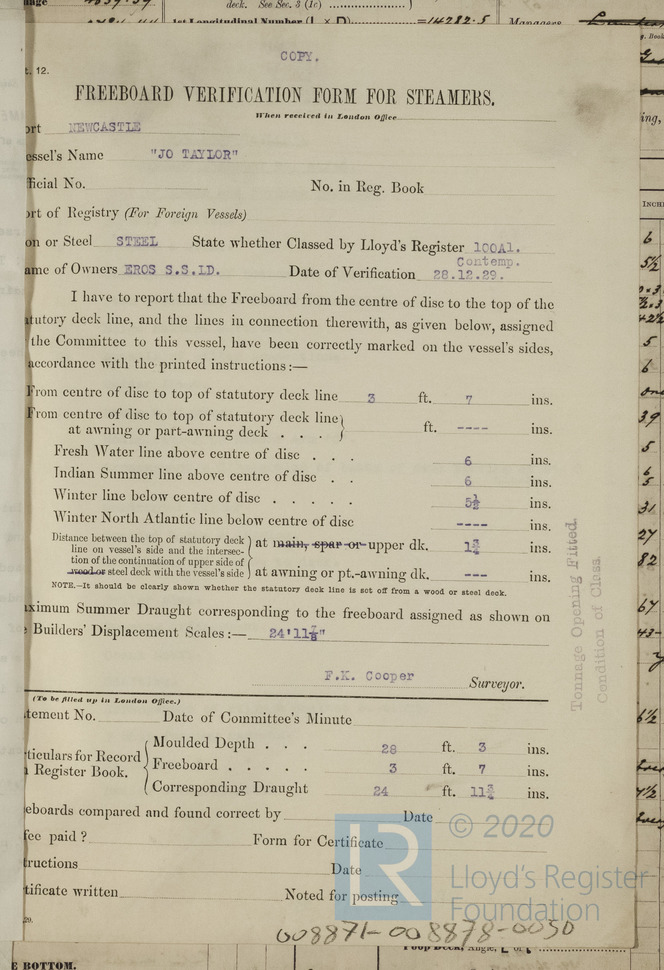 deck. See Sec. 3 (1c)
1st Longitudinal Number (L × D) =14782.5 Managers
COPY.
t. 12.
FREEBOARD VERIFICATION FORM FOR STEAMERS.
When received in London Office
ort NEWCASTLE
essel's Name "JO TAYLOR"
ficial No. No. in Reg. Book
ort of Registry (For Foreign Vessels)
on or Steel STEEL State whether Classed by Lloyd's Register 100A1.
Contemp.
ame of Owners EROS S.S.LD. Date of Verification 28.12.29.
I have to report that the Freeboard from the centre of disc to the top of the
atutory deck line, and the lines in connection therewith, as given below, assigned
the Committee to this vessel, have been correctly marked on the vessel's sides,
accordance with the printed instructions:—
From centre of disc to top of statutory deck line 3 ft. 7 ins.
From centre of disc to top of statutory deck line
at awning or part-awning deck . . . ft. ---- ins.
Fresh Water line above centre of disc . . . 6 ins.
Indian Summer line above centre of disc . . 6 ins.
Winter line below centre of disc . . . . . 5½ ins.
Winter North Atlantic line below centre of disc ---- ins.
Distance between the top of statutory deck
line on vessel's side and the intersec- at main, spar or upper dk. 1¾ ins.
tion of the continuation of upper side of
wood or steel deck with the vessel's side at awning or pt.-awning dk. --- ins.
NOTE.—It should be clearly shown whether the statutory deck line is set off from a wood or steel deck.
aximum Summer Draught corresponding to the freeboard assigned as shown on
e Builders' Displacement Scales:— 24'11⅞"
F.K. Cooper Surveyor.
Tonnage Opening Fitted.
Condition of Class.
(To be filled up in London Office.)
tement No. Date of Committee's Minute
Moulded Depth . . . 28 ft. 3 ins.
ticulars for Record
Register Book. Freeboard . . . . . 3 ft. 7 ins.
Corresponding Draught 24 ft. 11¾ ins.
eboards compared and found correct by Date
fee paid ? Form for Certificate
tructions Date
tificate written Noted for posting
© 2020
Lloyd's Register
Foundation
008871-008878-0050
E BOTTOM.